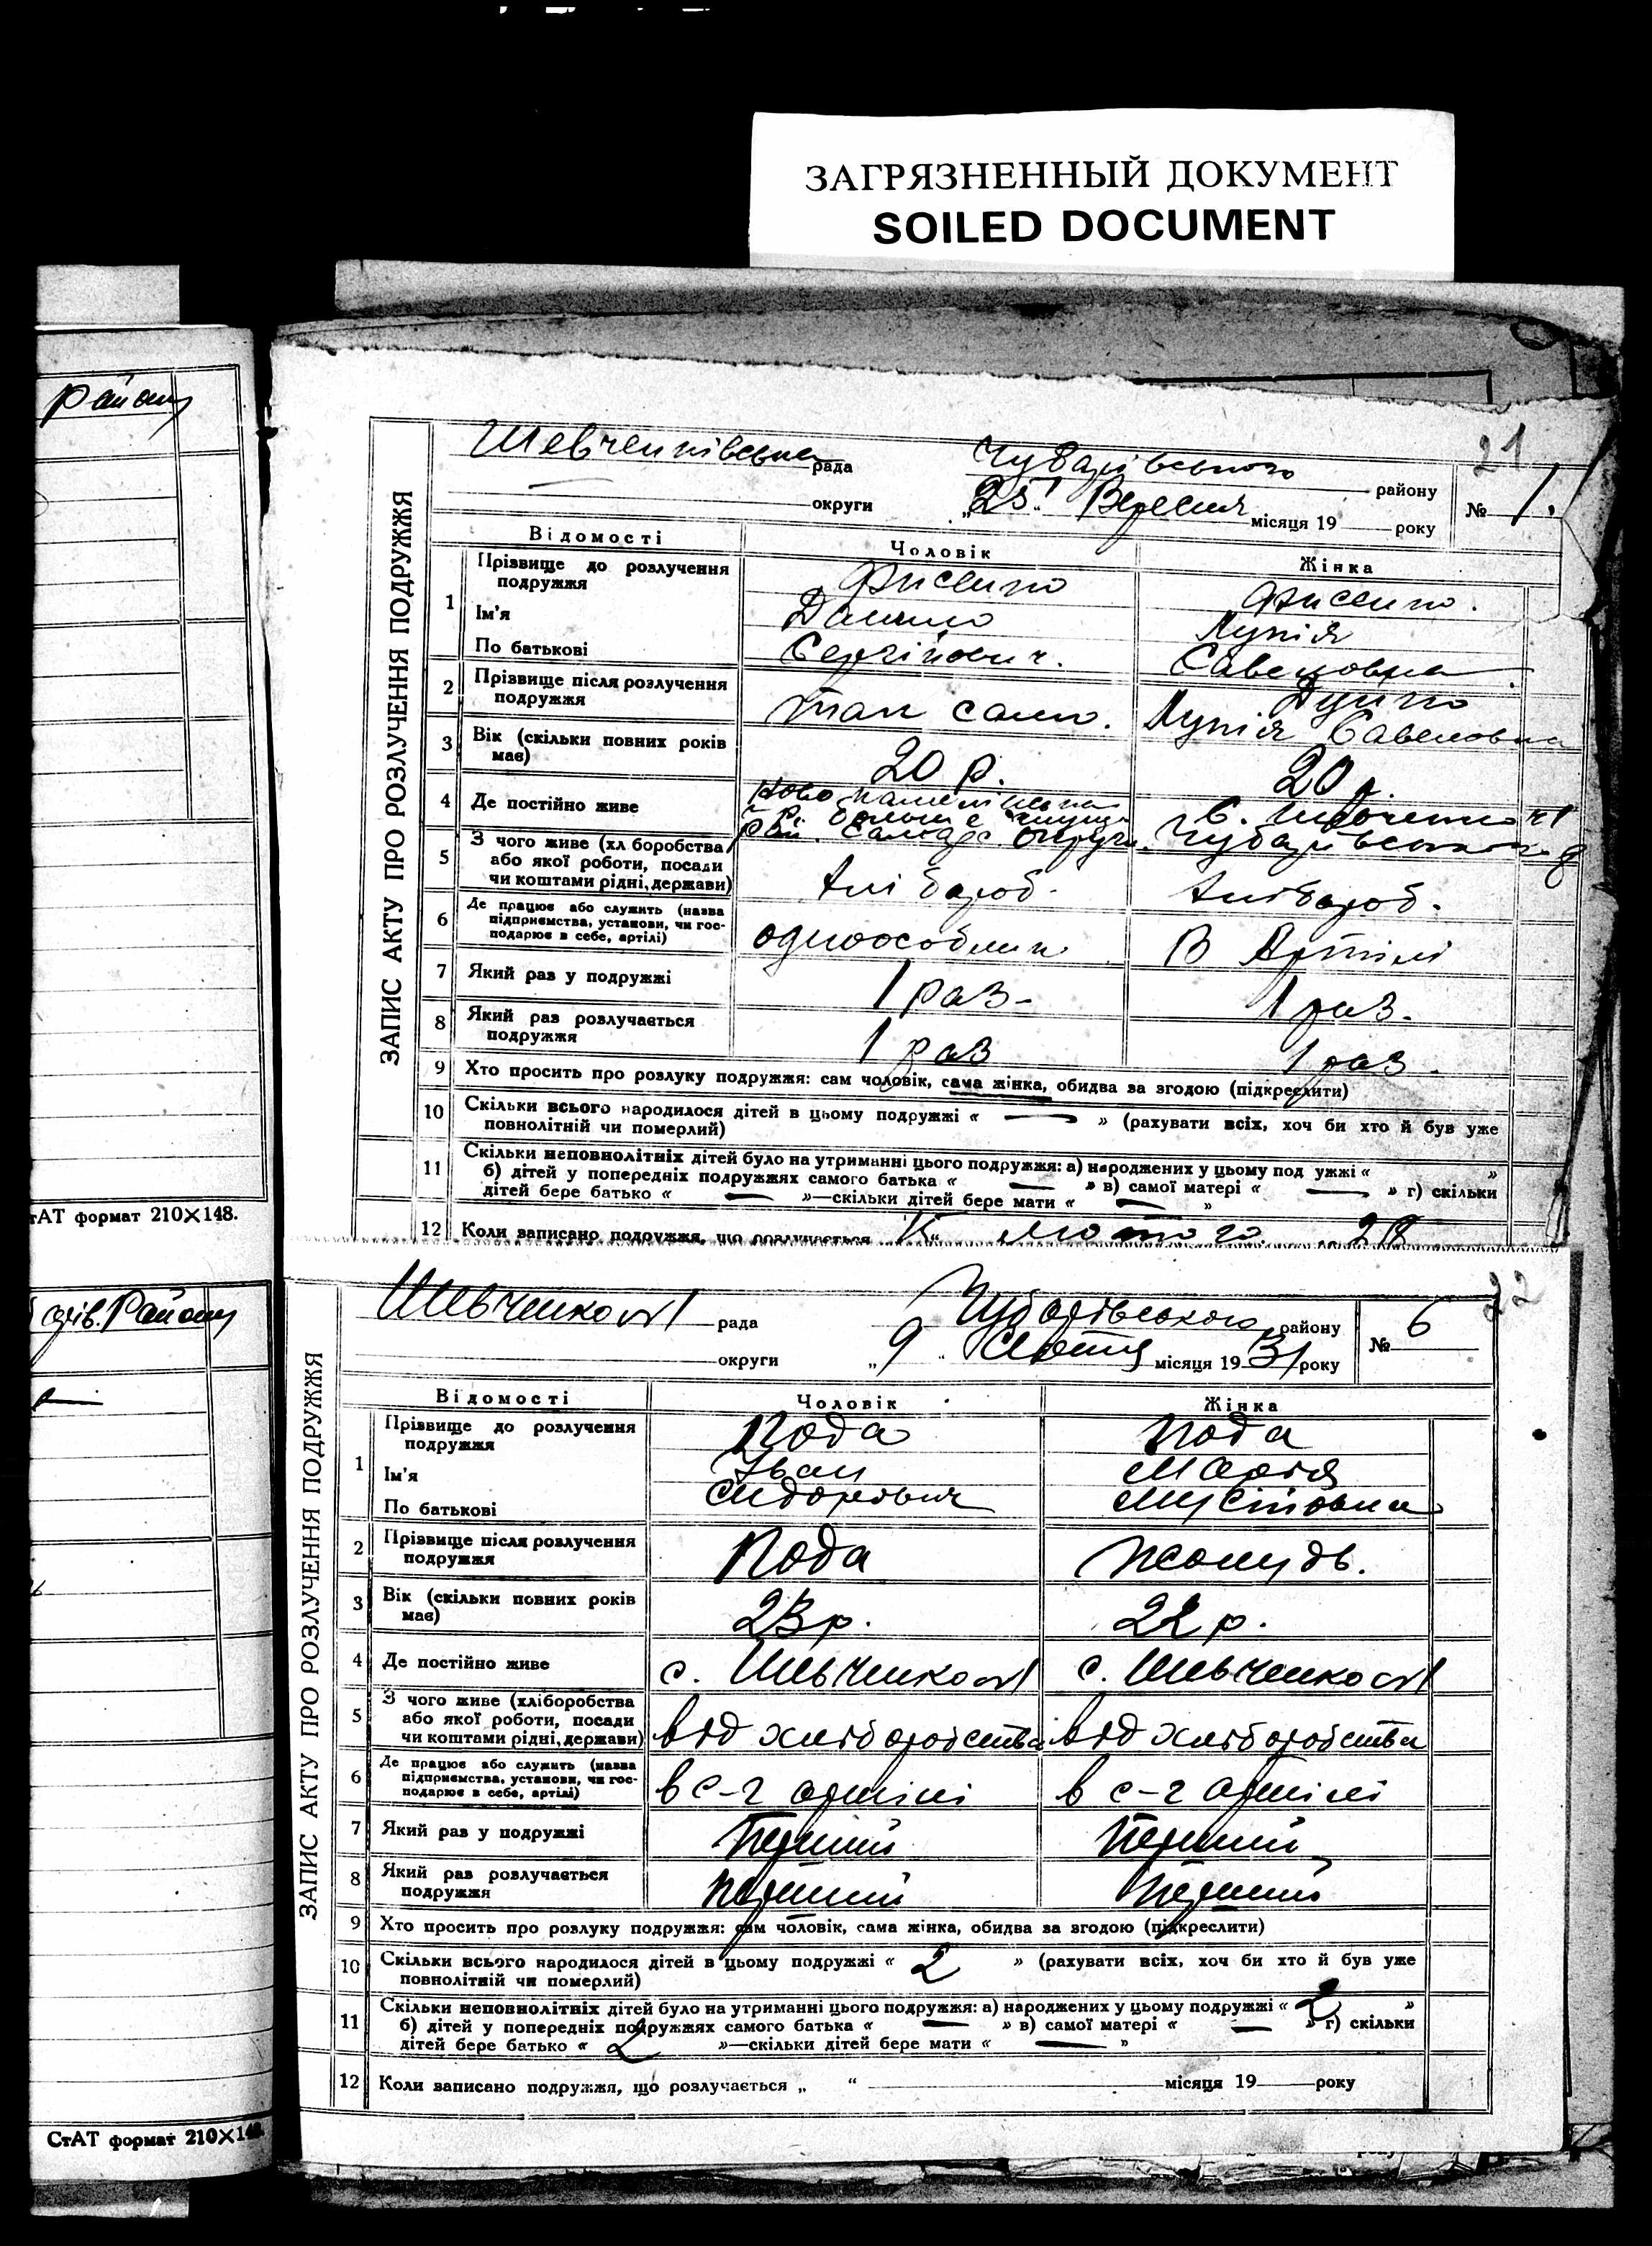 ЗАГРЯЗНЕННЫЙ ДОКУМЕНТ
SOILED DOCUMENT
Району
тАТ формат 210×148.
Району
СтАТ формат 210×148.
21
ЗАПИС АКТУ ПРО РОЗЛУЧЕННЯ ПОДРУЖЖЯ
Шевченківська рада Чубарівського району
округи „25" Вересня місяця 19 року № 1.
Відомості Чоловік Жінка
1 Прізвище до розлучення
подружжя
Ім'я Данило
По батькові Сергійович. Савеловна
2 Прізвище після розлучення
подружжя так само. Савеловна
3 Вік (скільки повних років
має) 20 р. 20 р.
4 Де постійно живе с. Шевченко №1
Чубарівського
5 З чого живе (хліборобства
або якої роботи, посади
чи коштами рідні, держави) хлібороб. хлібороб.
6 Де працює або служить (назва
підприємства, установи, чи гос-
подарює в себе, артілі) одноосібник В Артілі
7 Який раз у подружжі 1 раз- 1 раз.
8 Який раз розлучається
подружжя 1 раз 1 раз.
9 Хто просить про розлуку подружжя: сам чоловік, сама жінка, обидва за згодою (підкреслити)
10 Скільки всього народилося дітей в цьому подружжі « — » (рахувати всіх, хоч би хто й був уже
повнолітній чи померлий)
11 Скільки неповнолітніх дітей було на утриманні цього подружжя: а) народжених у цьому под ужжі « »
б) дітей у попередніх подружжях самого батька « — » в) самої матері « — » г) скільки
дітей бере батько « — »—скільки дітей бере мати « — »
12 Коли записано подружжя, що розлучається лютого 28
22
ЗАПИС АКТУ ПРО РОЗЛУЧЕННЯ ПОДРУЖЖЯ
Шевченко №1 рада Чубарівського району
округи „9" місяця 1931 року № 6
Відомості Чоловік Жінка
1 Прізвище до розлучення
подружжя Пода Пода
Ім'я Іван Марія
По батькові Сидорович Мусіївна
2 Прізвище після розлучення
подружжя Пода Жолудь.
3 Вік (скільки повних років
має) 23 р. 22 р.
4 Де постійно живе с. Шевченко №1 с. Шевченко №1
5 З чого живе (хліборобства
або якої роботи, посади
чи коштами рідні, держави) від хліборобства від хліборобства
6 Де працює або служить (назва
підприємства, установи, чи гос-
подарює в себе, артілі) в с-г артілі в с-г артілі
7 Який раз у подружжі Перший Перший
8 Який раз розлучається
подружжя Перший Перший
9 Хто просить про розлуку подружжя: сам чоловік, сама жінка, обидва за згодою (підкреслити)
10 Скільки всього народилося дітей в цьому подружжі « 2 » (рахувати всіх, хоч би хто й був уже
повнолітній чи померлий)
11 Скільки неповнолітніх дітей було на утриманні цього подружжя: а) народжених у цьому подружжі « 2 »
б) дітей у попередніх подружжях самого батька « — » в) самої матері « — » г) скільки
дітей бере батько « 2 »—скільки дітей бере мати « — »
12 Коли записано подружжя, що розлучається „ “ місяця 19 року